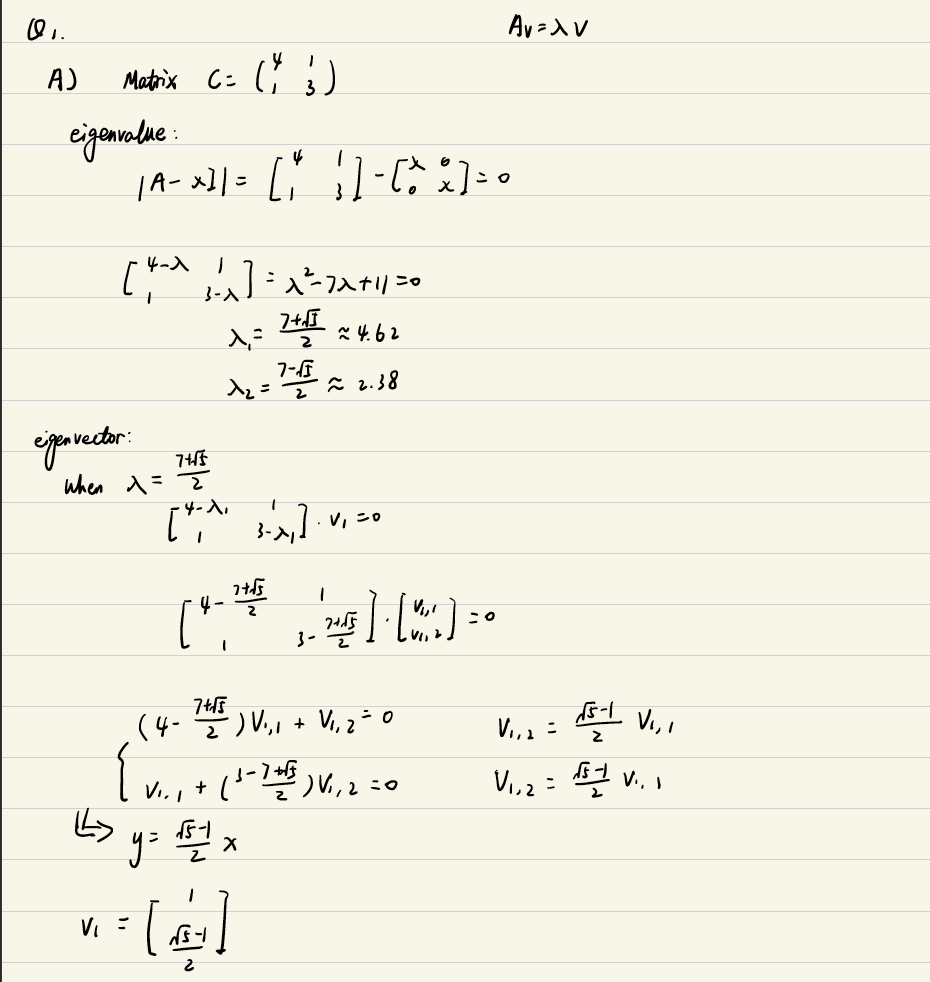 Q1. Av = λv
A) Matrix C = (4 1; 1 3)
eigenvalue:
|A - xI| = [4 1; 1 3] - [x 0; 0 x] = 0
[4-λ 1; 1 3-λ] = λ² - 7λ + 11 = 0
λ₁ = (7+√5)/2 ≈ 4.62
λ₂ = (7-√5)/2 ≈ 2.38
eigenvector:
When λ = (7+√5)/2
[4-λ₁ 1; 1 3-λ₁] · v₁ = 0
[4 - (7+√5)/2 1; 1 3 - (7+√5)/2] · [v₁,₁; v₁,₂] = 0
(4 - (7+√5)/2) V₁,₁ + V₁,₂ = 0 V₁,₂ = (√5-1)/2 V₁,₁
{ V₁,₁ + ((3-7+√5)/2) V₁,₂ = 0 V₁,₂ = (√5-1)/2 V₁,₁
⇒ y = (√5-1)/2 x
V₁ = [1; (√5-1)/2]